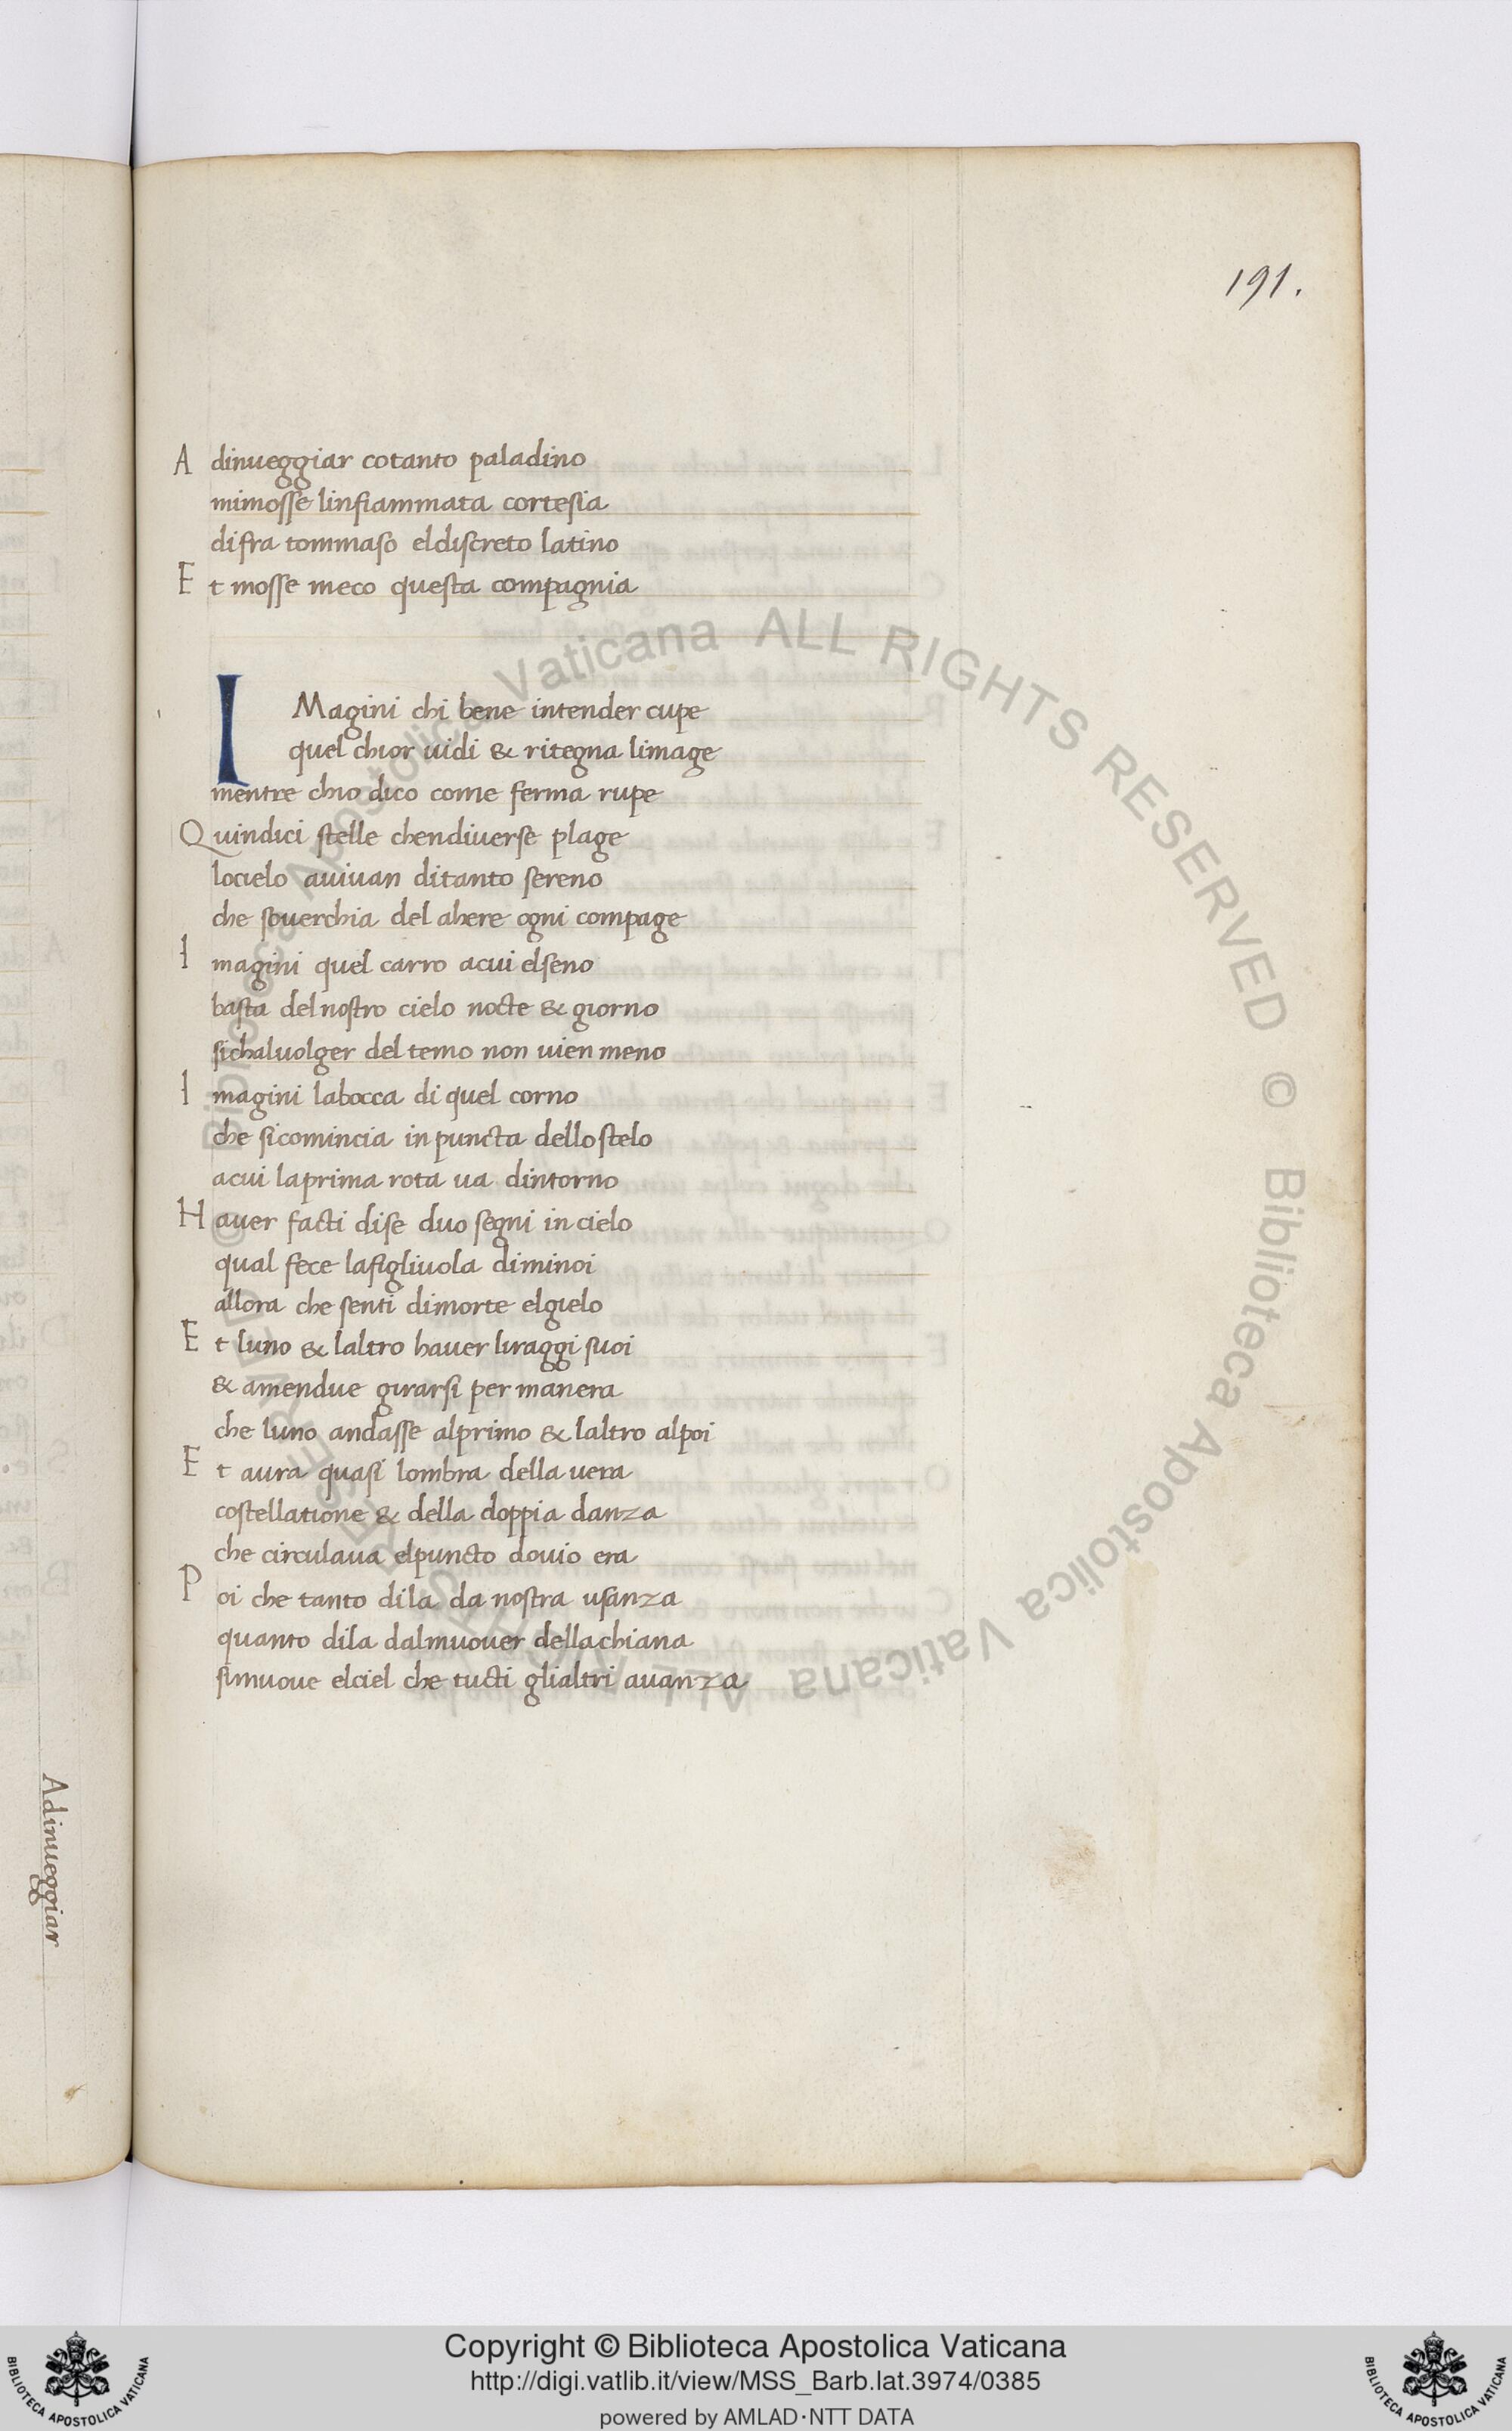 191.
A dinueggiar cotanto paladino
mimosse linfiammata cortesia
difra tommaso eldiscreto latino
E t mosse meco questa compagnia
I Magini chi bene intender cupe
quel chior uidi & ritegna limage
mentre chio dico come ferma rupe
Q uindici stelle chendiuerse plage
locielo auiuan ditanto sereno
che souerchia del ahere ogni compage
I magini quel carro acui elseno
basta delnostro cielo nocte & giorno
sichaluolger del temo non uien meno
I magini labocca di quel corno
che sicomincia in puncta dellostelo
acui laprima rota ua dintorno
H auer facti dise duo segni in cielo
qual fece lafigliuola diminoi
allora che senti dimorte elgielo
E t luno & laltro hauer liraggi suoi
& amendue girarsi per manera
che luno andasse alprimo & laltro alpoi
E t aura quasi lombra della uera
costellatione & della doppia danza
che circulaua elpuncto douio era
P oi che tanto dila da nostra usanza
quanto dila dalmuouer dellachiana
simuoue elciel che tucti glialtri auanza
Adinueggiar
© Biblioteca Apostolica Vaticana ALL RIGHTS RESERVED © Biblioteca Apostolica Vaticana ALL RIGHTS RESERVED
Copyright © Biblioteca Apostolica Vaticana
http://digi.vatlib.it/view/MSS_Barb.lat.3974/0385
powered by AMLAD·NTT DATA
BIBLIOTECA APOSTOLICA VATICANA
BIBLIOTECA APOSTOLICA VATICANA